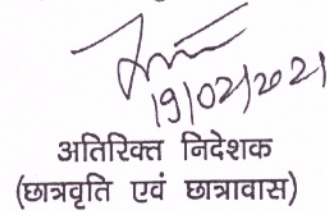 19/02/2021
अतिरिक्त निदेशक
(छात्रवृति एवं छात्रावास)